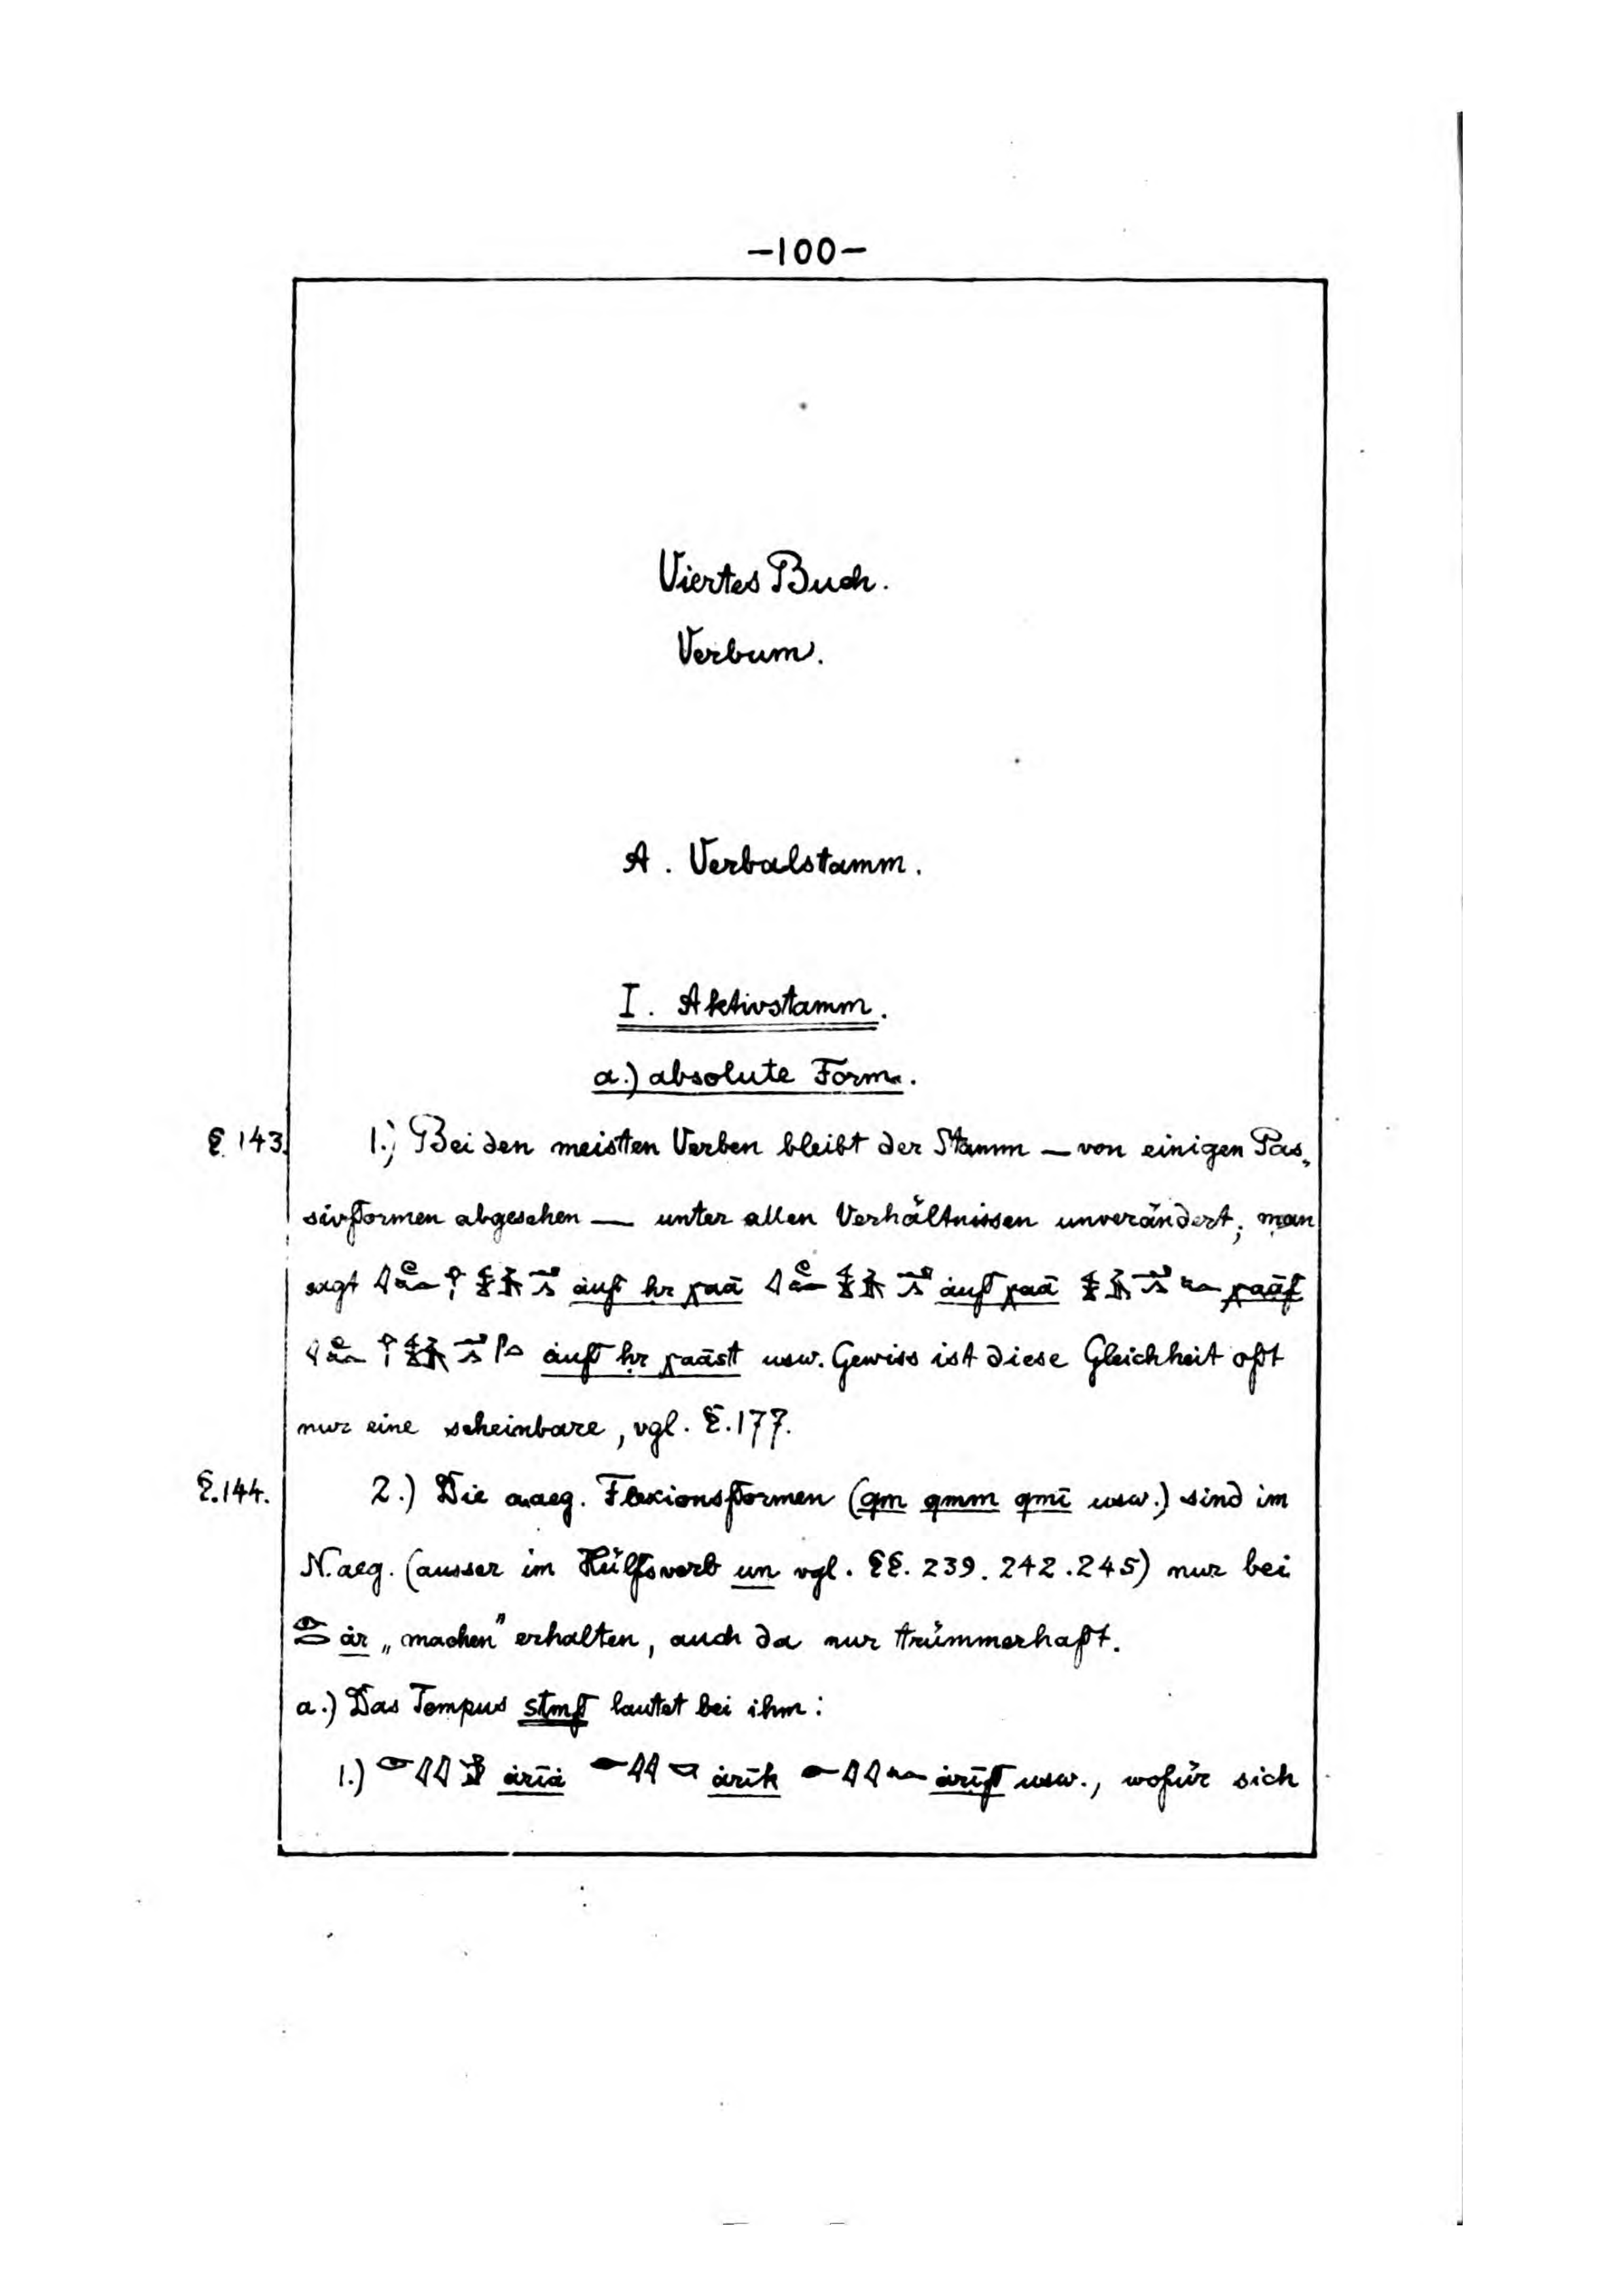 -100-
Viertes Buch.
Verbum.
A. Verbalstamm.
I. Aktivstamm.
a.) absolute Form.
§. 143. 1.) Bei den meisten Verben bleibt der Stamm — von einigen Pas-
sivformen abgesehen — unter allen Verhältnissen unverändert; man
sagt ȧuf ḥr χaā ȧuf χaā χaāf
ȧuf ḥr χaāst usw. Gewiss ist diese Gleichheit oft
nur eine scheinbare, vgl. §. 177.
§. 144. 2.) Die a.aeg. Flexionsformen (qm qmm qmī usw.) sind im
N.aeg. (ausser im Hülfsverb un vgl. §§. 239. 242. 245) nur bei
ȧr „machen" erhalten, auch da nur trümmerhaft.
a.) Das Tempus stmf lautet bei ihm:
1.) ȧrīȧ ȧrīk ȧrīf usw., wofür sich